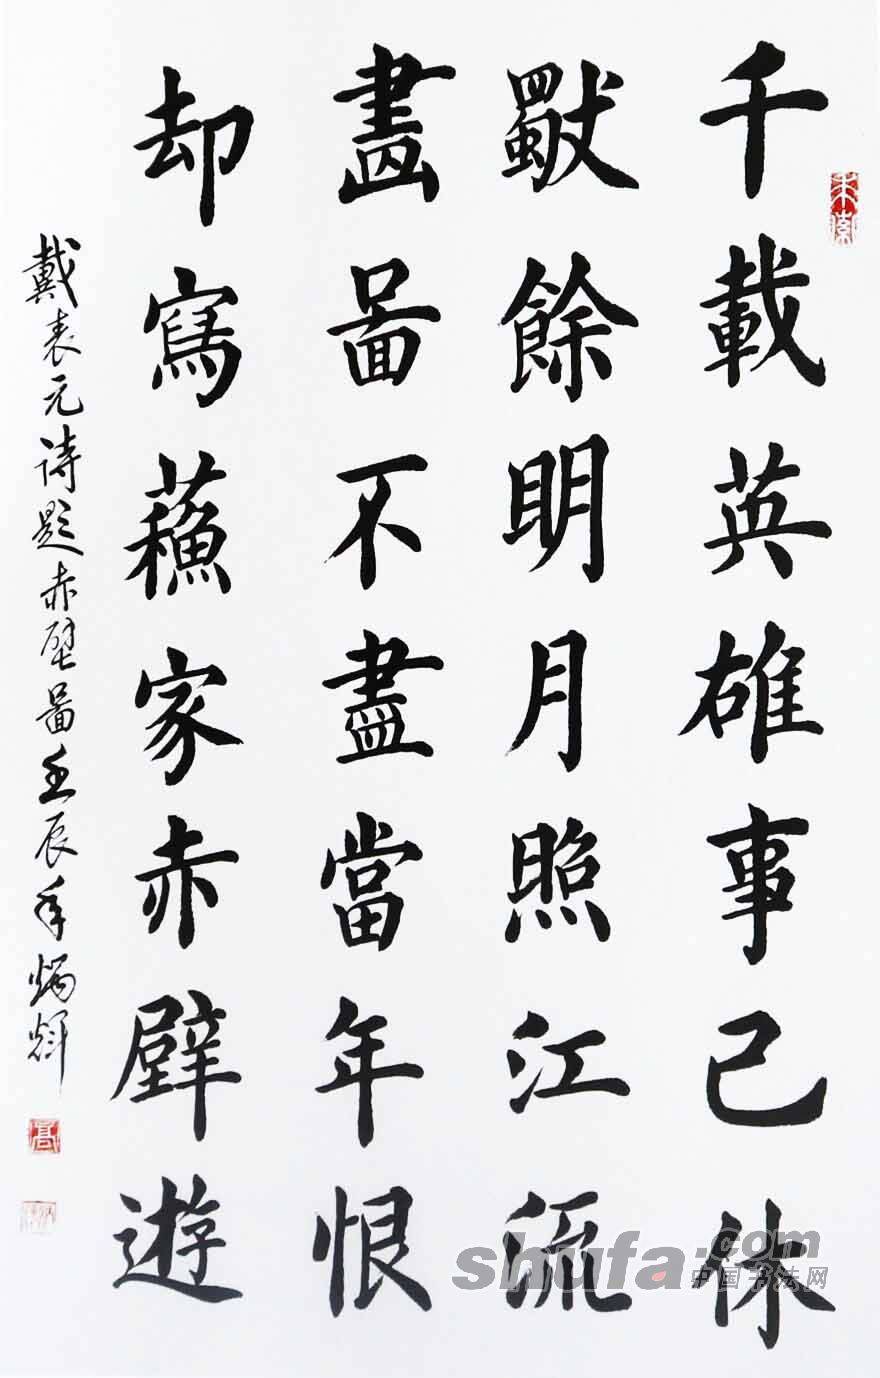 千載英雄事已休
獨餘明月照江流
畫圖不盡當年恨
却寫蘓家赤壁遊
戴表元诗题赤壁圖壬辰年
高
shufa.com
中国书法网